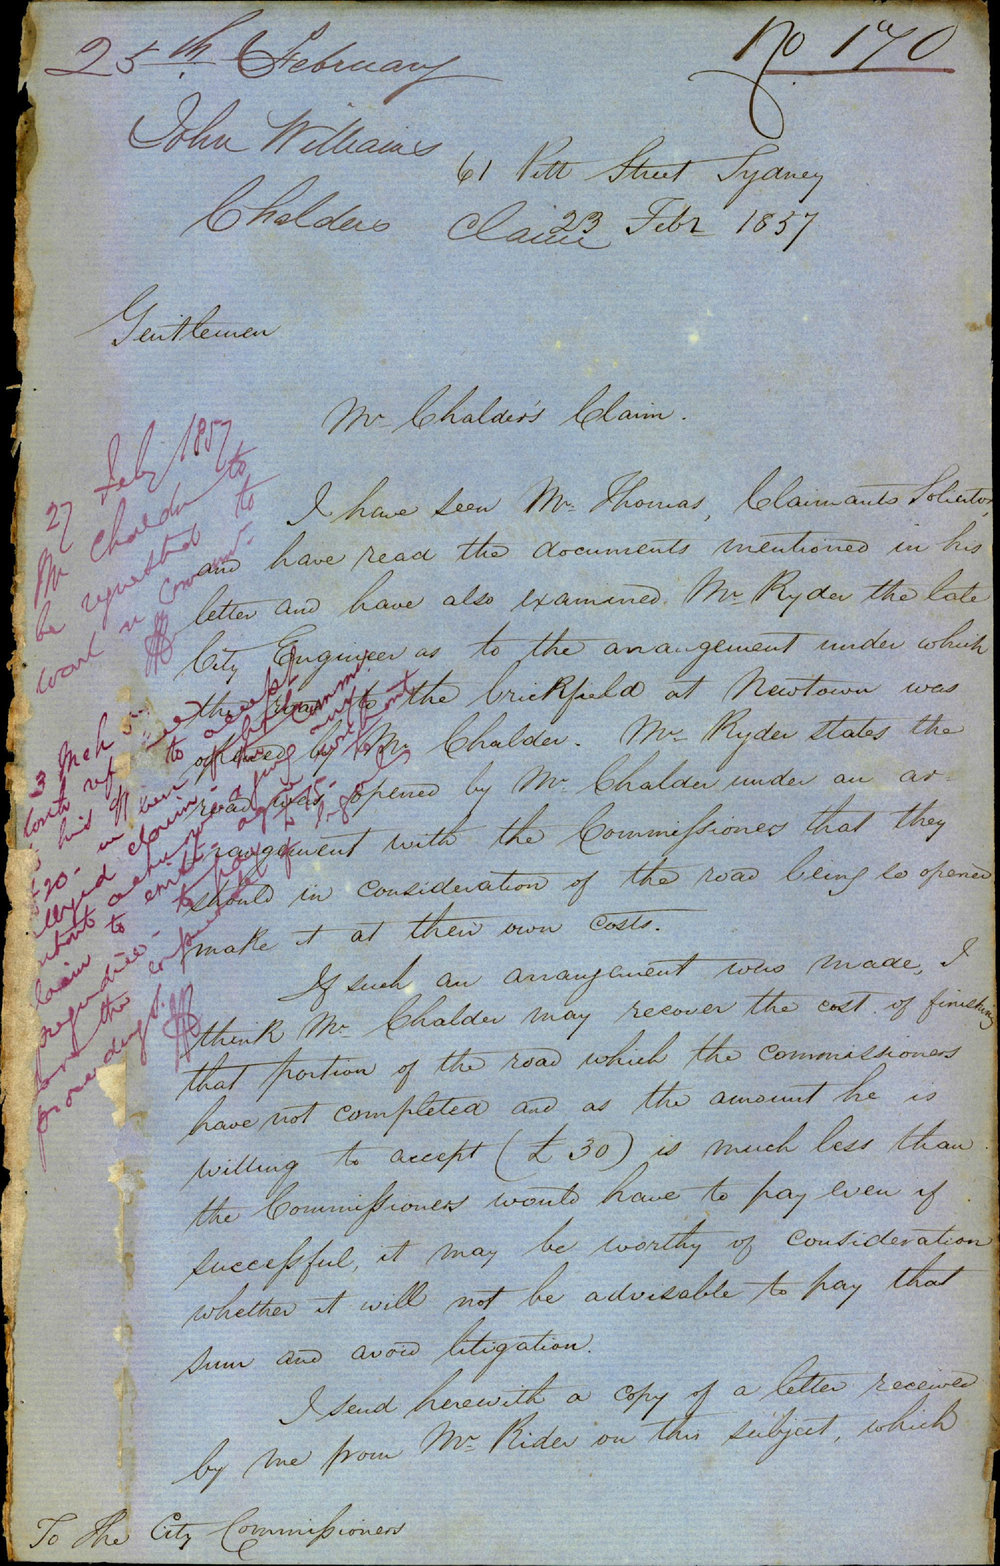 25th February
No 170
John Williams
61 Pitt Street Sydney
Chalders Claim
23 Febr 1857
Gentlemen
Mr Chalder's Claim.
I have seen Mr Thomas, Claimants Solicitor,
and have read the documents mentioned in his
letter and have also examined Mr Ryder the late
City Engineer as to the arrangement under which
the road to the brickfield at Newtown was
opened by Mr Chalder. Mr Ryder states the
road was opened by Mr Chalder under an ar-
rangement with the Commissioners that they
should in consideration of the road being so opened
make it at their own costs.
If such an arrangement was made, I
think Mr Chalder may recover the cost of finishing
that portion of the road which the commissioners
have not completed and as the amount he is
willing to accept (£30) is much less than
the Commissioners would have to pay even if
successful, it may be worthy of consideration
whether it will not be advisable to pay that
sum and avoid litigation.
I send herewith a copy of a letter received
by me from Mr Rider on this subject, which
To The City Commissioners
27 Feby 1857
Mr Chalder to
be requested to
wait on Commrs.
3 Mch
to accept
his
£20. in lieu of
alleged claim
claim to
prejudice
the
proceedings.